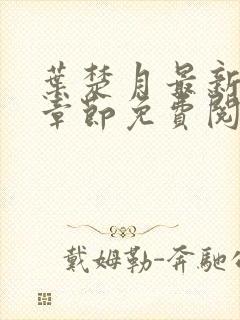 葉楚月最新
章節免費閱
戴姆勒-奔馳公